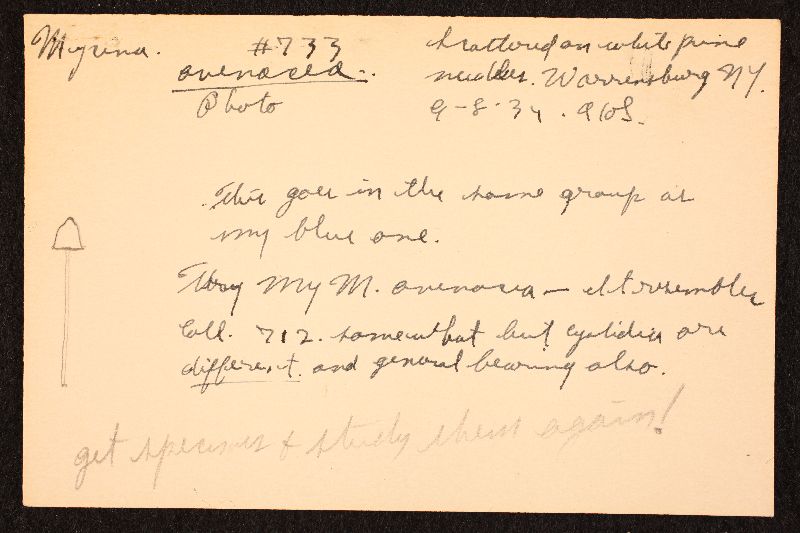 Mycena. #733 scattered on white pine
avenacea. needles. Warrensburg NY.
Photo 9-8-34. AHS.
This goes in the same group as
my blue one.
Try my M. avenacea - It resembles
Coll. 712. somewhat but cystidia are
different. and general bearing also.
get specimens & study them again!